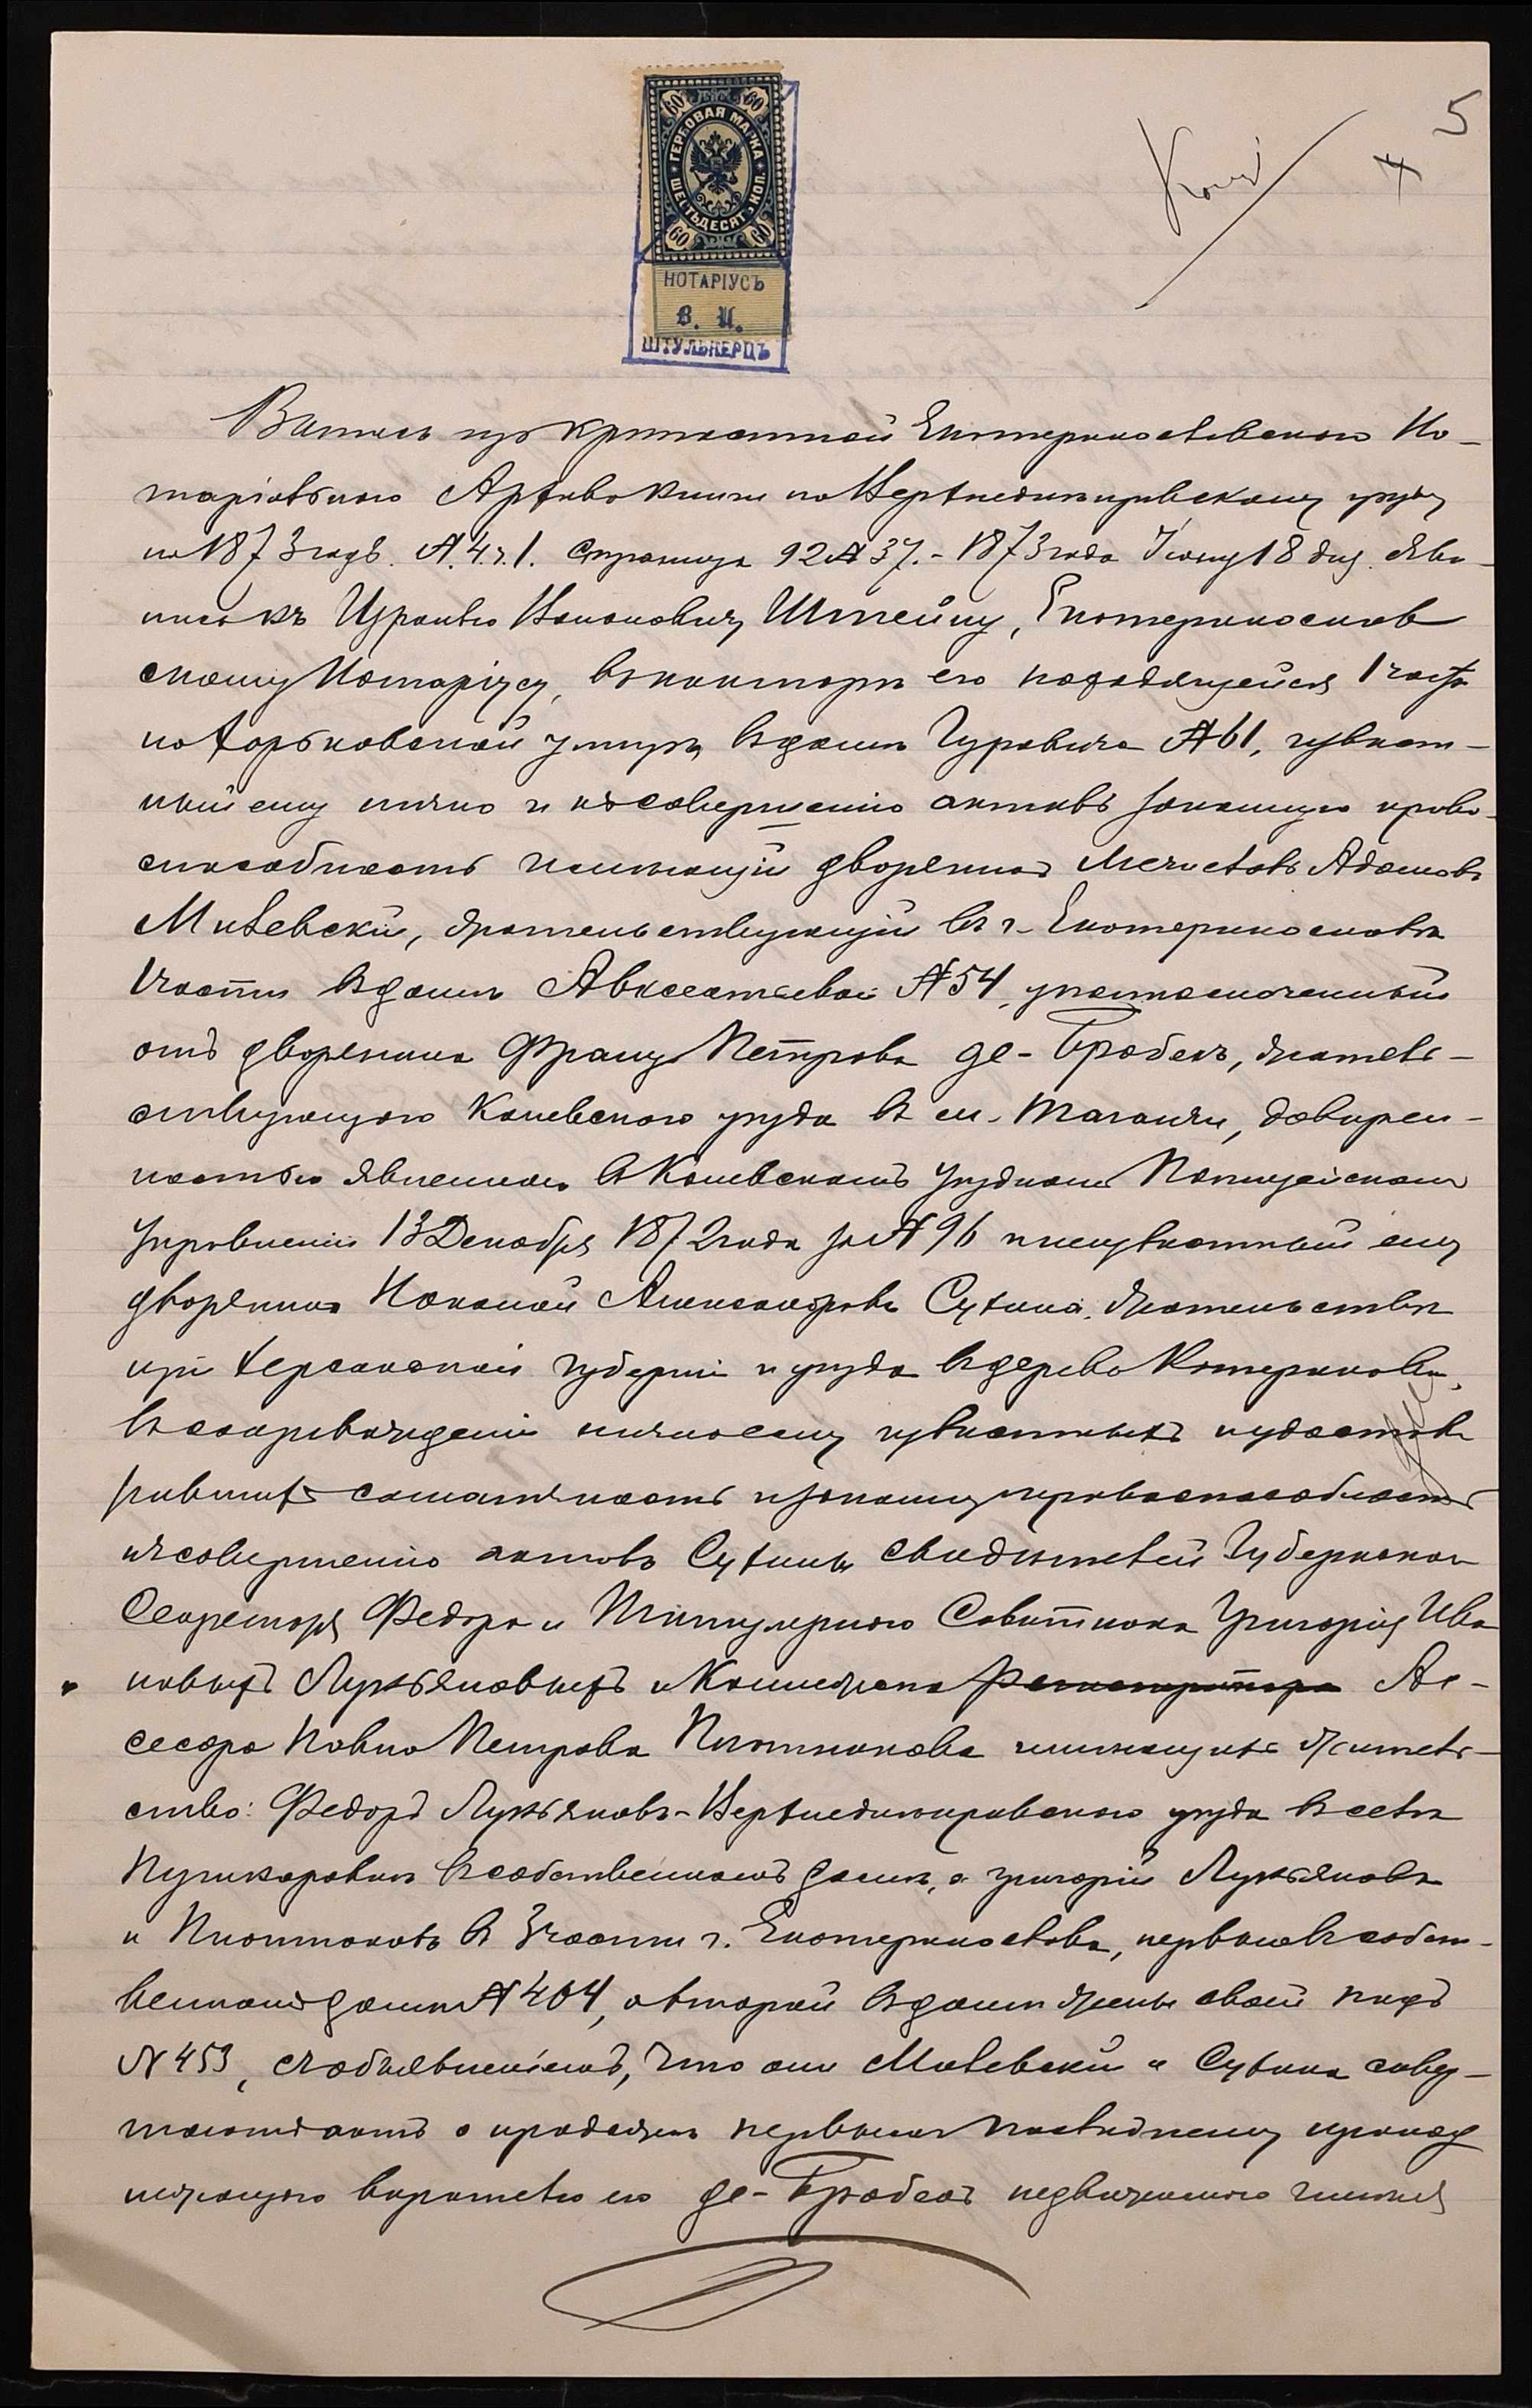 5
4
Копія
60 60
ГЕРБОВАЯ МАРКА
ШЕСТЬДЕСЯТ КОП.
60 60
НОТАРІУСЪ
В. И.
ШТУЛЬКЕРЦЪ
Выпись изъ крепостной Екатеринославскаго Но-
таріальнаго Архива книги по Верхнеднепровскому уезду
на 1873 годъ. № 4. ч. 1. Страница 92 № 37. - 1873 года Іюня 18 дня. Яви
лись къ Израилю Исааковичу Штейну, Екатеринослав
скому Нотаріусу, въ конторе его находящейся 1 части
по Харьковской улице въ доме Гуровича № 61, извест-
ный ему лично и къ совершенію актовъ законную право-
способность имеющій дворянинъ Мечиславъ Адамовъ
Милевскій, жительствующій въ г. Екатеринославе
1 части въ доме Авксентьевой № 54, уполномоченный
отъ дворянина Франца Петрова де-Бральекъ, житель-
ствующаго Каневскаго уезда въ м. Таганчи, доверен-
ностью явленною въ Каневскомъ Уездномъ Полицейскомъ
Управленіи 13 Декабря 1872 года за № 96 и неизвестный ему
дворянинъ Исаакій Александровъ Сухина, жительствую
щій Херсонской губерніи и уезда въ дерев. Катериновке,
въ сопровожденіи лично ему известныхъ и удостове
рившихъ самоличность и законную правоспособность
къ совершенію актовъ Сухины свидетелей Губернскаго
Секретаря Федора и Титулярнаго Советника Григорія Ива
новыхъ Лукьяновыхъ и Коллежскаго Регистратора Ас-
сесора Павла Петрова Плотникова имеющихъ житель-
ство: Федоръ Лукьяновъ - Верхнеднепровскаго уезда въ селе
Пушкаровке въ собственномъ доме, а Григорій Лукьяновъ
и Плотниковъ въ 3 части г. Екатеринослава, первый въ собст-
венномъ доме № 404, а второй въ доме жены своей подъ
№ 453, съ объявленіемъ, что они Милевскій и Сухина совер-
шаютъ актъ о продаже первымъ последнему принад
лежащаго верителю его де-Бральекъ недвижимаго именія